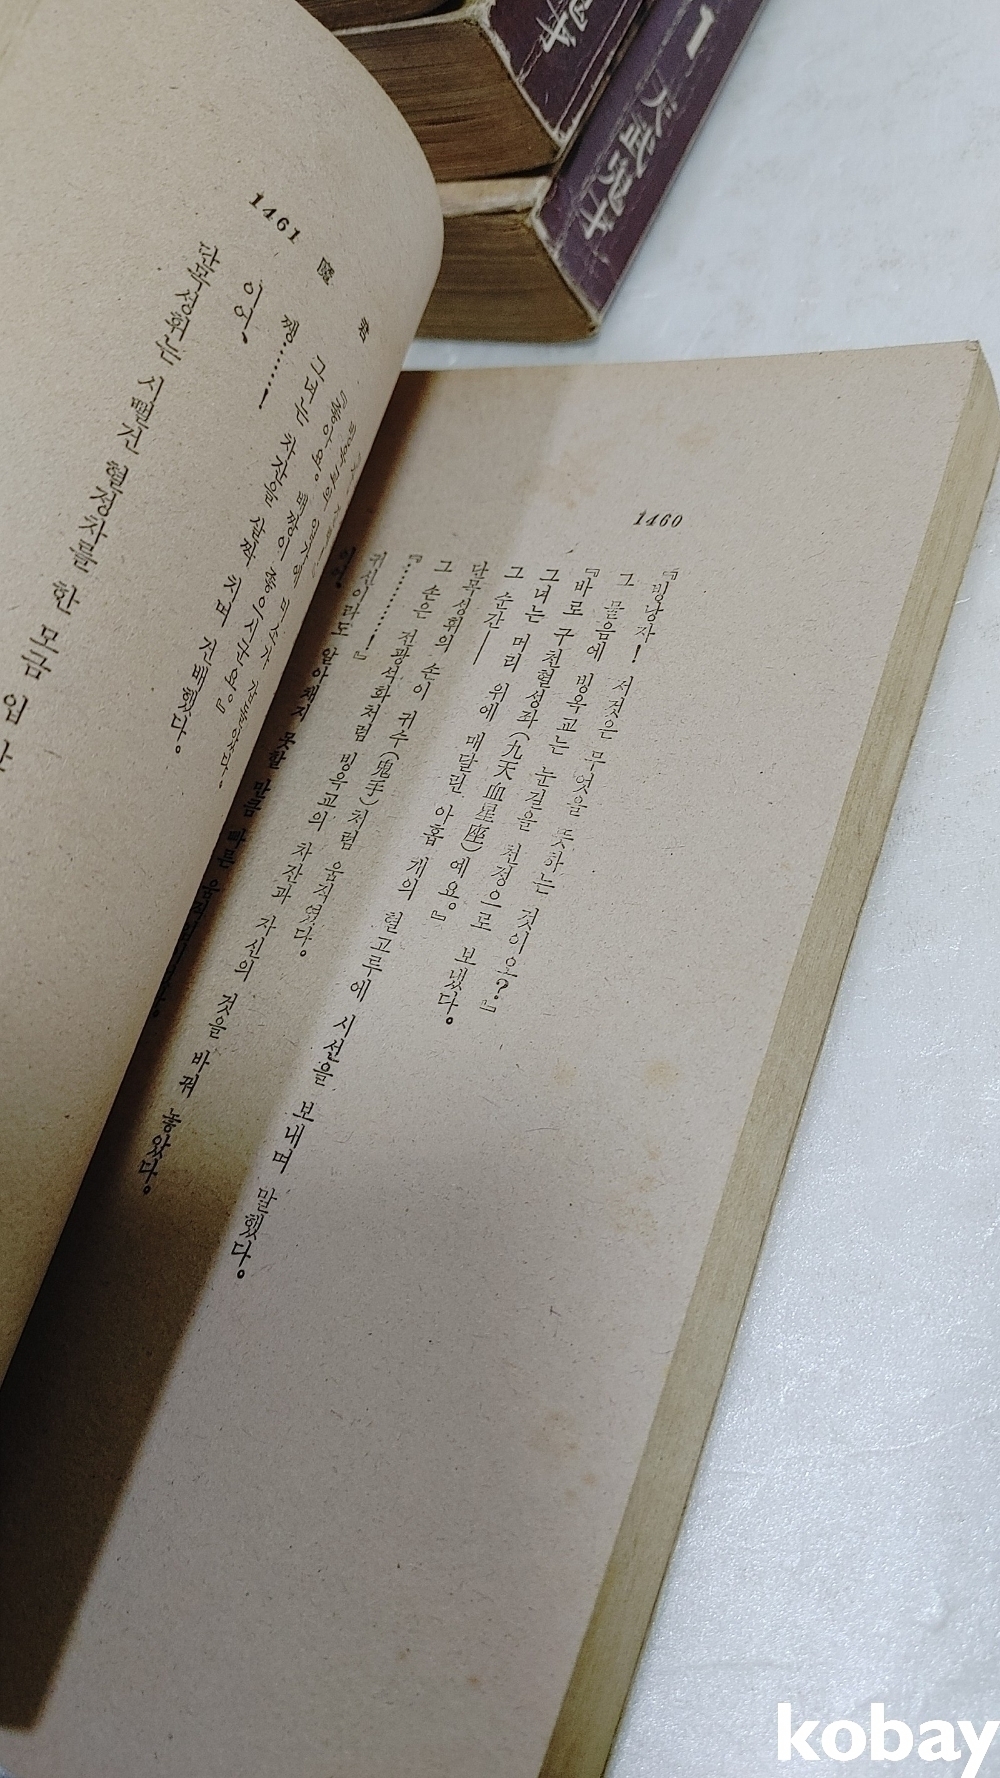 1
1460
『빙낭자! 저것은 무엇을 뜻하는 것이오?』
그 물음에 빙옥교는 눈길을 천정으로 보냈다.
『바로 구천혈성좌(九天血星座)예요.』
그녀는 머리 위에 매달린 아홉 개의 혈고루에 시선을 보내며 말했다.
그 순간——
단목성휘의 손이 귀수(鬼手)처럼 움직였다.
그 손은 전광석화처럼 빙옥교의 차잔과 자신의 것을 바꿔 놓았다.
『………!』
귀신이라도 알아채지 못할 만큼 빠른
1461
이어.
쨍……!
그녀는 차잔을 살짝 치며 건배했다.
단목성휘는 시뻘건 혈정차를 한 모금 입
kobay